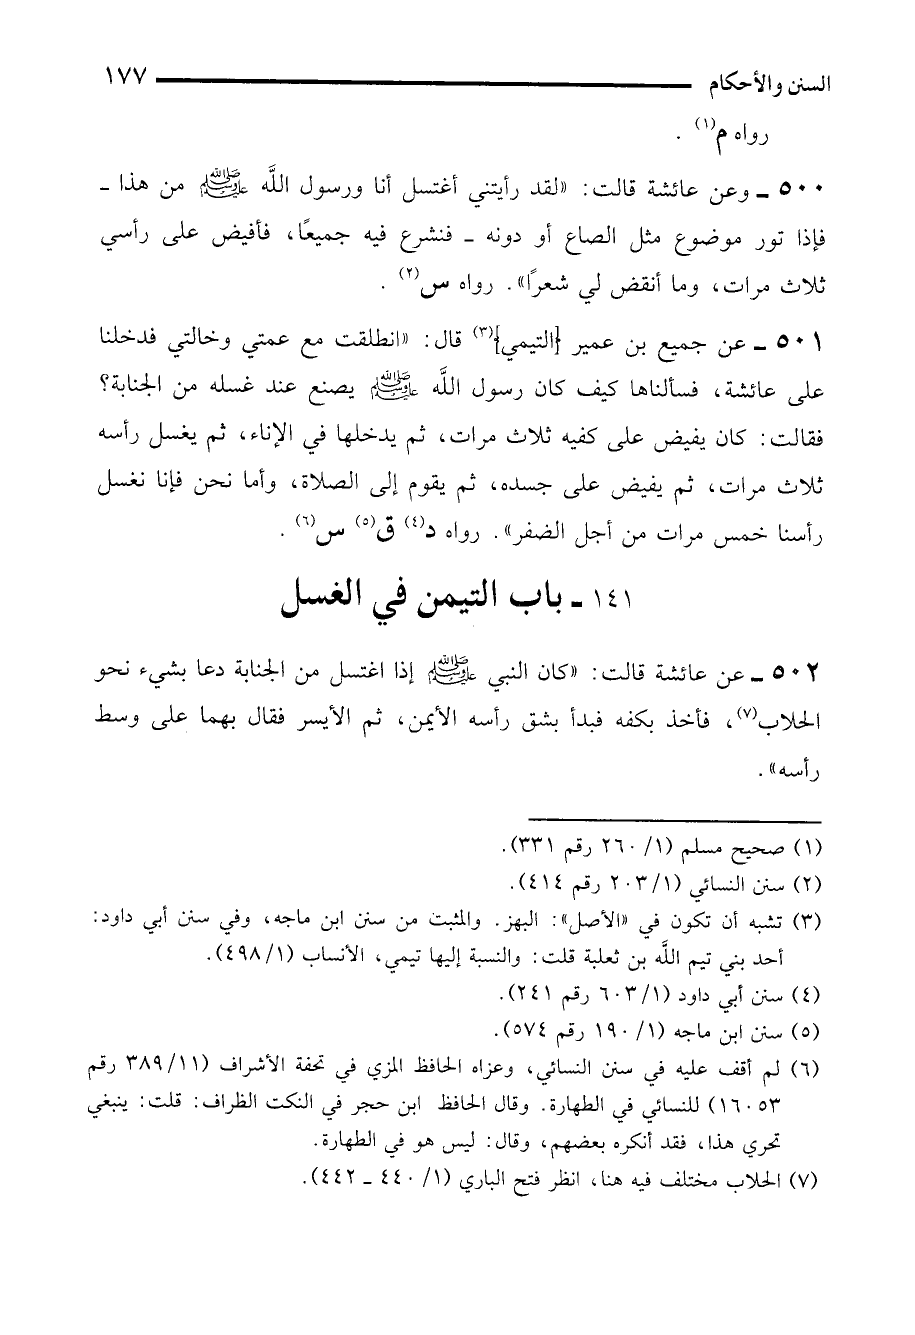 السنن والأحكام ١٧٧
رواه م(١) .
٥٠٠ ـ وعن عائشة قالت: «لقد رأيتني أغتسل أنا ورسول اللَّه ﷺ من هذا ـ
فإذا تور موضوع مثل الصاع أو دونه ـ فنشرع فيه جميعًا، فأفيض على رأسي
ثلاث مرات، وما أنقض لي شعرًا». رواه س(٢) .
٥٠١ ـ عن جميع بن عمير [التيمي](٣) قال: «انطلقت مع عمتي وخالتي فدخلنا
على عائشة، فسألناها كيف كان رسول اللَّه ﷺ يصنع عند غسله من الجنابة؟
فقالت: كان يفيض على كفيه ثلاث مرات، ثم يدخلها في الإناء، ثم يغسل رأسه
ثلاث مرات، ثم يفيض على جسده، ثم يقوم إلى الصلاة، وأما نحن فإنا نغسل
رأسنا خمس مرات من أجل الضفر». رواه د(٤) ق(٥) س(٦) .
١٤١ ـ باب التيمن في الغسل
٥٠٢ ـ عن عائشة قالت: «كان النبي ﷺ إذا اغتسل من الجنابة دعا بشيء نحو
الحلاب(٧)، فأخذ بكفه فبدأ بشق رأسه الأيمن، ثم الأيسر فقال بهما على وسط
رأسه».
(١) صحيح مسلم (١/ ٢٦٠ رقم ٣٣١).
(٢) سنن النسائي (١/ ٢٠٣ رقم ٤١٤).
(٣) تشبه أن تكون في «الأصل»: البهز. والمثبت من سنن ابن ماجه، وفي سنن أبي داود:
أحد بني تيم اللَّه بن ثعلبة قلت: والنسبة إليها تيمي، الأنساب (١/ ٤٩٨).
(٤) سنن أبي داود (١/ ٦٠٣ رقم ٢٤١).
(٥) سنن ابن ماجه (١/ ١٩٠ رقم ٥٧٤).
(٦) لم أقف عليه في سنن النسائي، وعزاه الحافظ المزي في تحفة الأشراف (١١/ ٣٨٩ رقم
١٦٠٥٣) للنسائي في الطهارة. وقال الحافظ ابن حجر في النكت الظراف: قلت: ينبغي
تحري هذا، فقد أنكره بعضهم، وقال: ليس هو في الطهارة.
(٧) الحلاب مختلف فيه هنا، انظر فتح الباري (١/ ٤٤٠ ـ ٤٤٢).